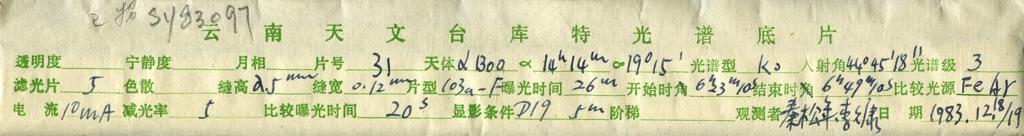 已扫 SY83097
云南天文台库特光谱底片
透明度 宁静度 月相 片号 31 天体 α Boo α 14h14m δ 19°15′ 光谱型 K0 入射角 44°45′18″ 光谱级 3
滤光片 5 色散 缝高 2.5mm 缝宽 0.12mm 片型 103a-F 曝光时间 26m 开始时角 6h23m10s 结束时角 6h49m10s 比较光源 FeAr
电流 10mA 减光率 5 比较曝光时间 20s 显影条件 D19 5m 阶梯 观测者 秦松年 日期 1983.12.18/19